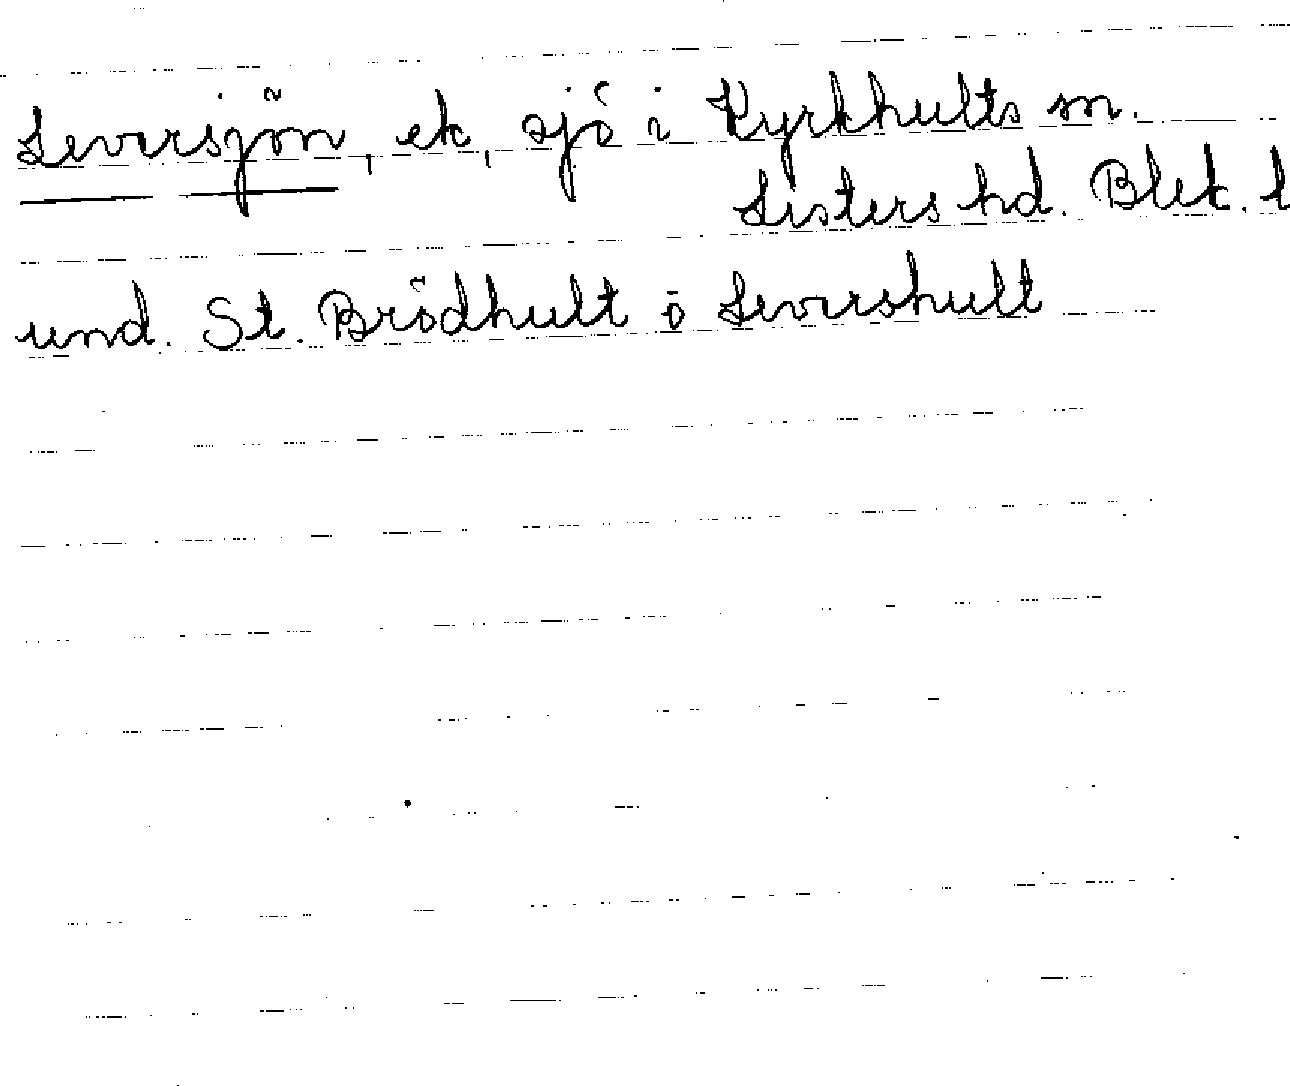 Leversjön, ek, sjö i Kyrkhults sn.
Listers hd. Blek. l
und. St. Brödhult o Levershult